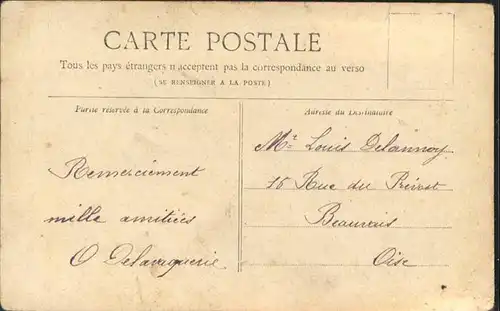 CARTE POSTALE
Tous les pays étrangers n'acceptent pas la correspondance au verso
(SE RENSEIGNER A LA POSTE)
Partie réservée à la Correspondance
Adresse du Destinataire
Remerciement
mille amitiées
O Delavaquerie
Mr Louis Delannoy
16 Rue du Prévot
Beauvais
Oise